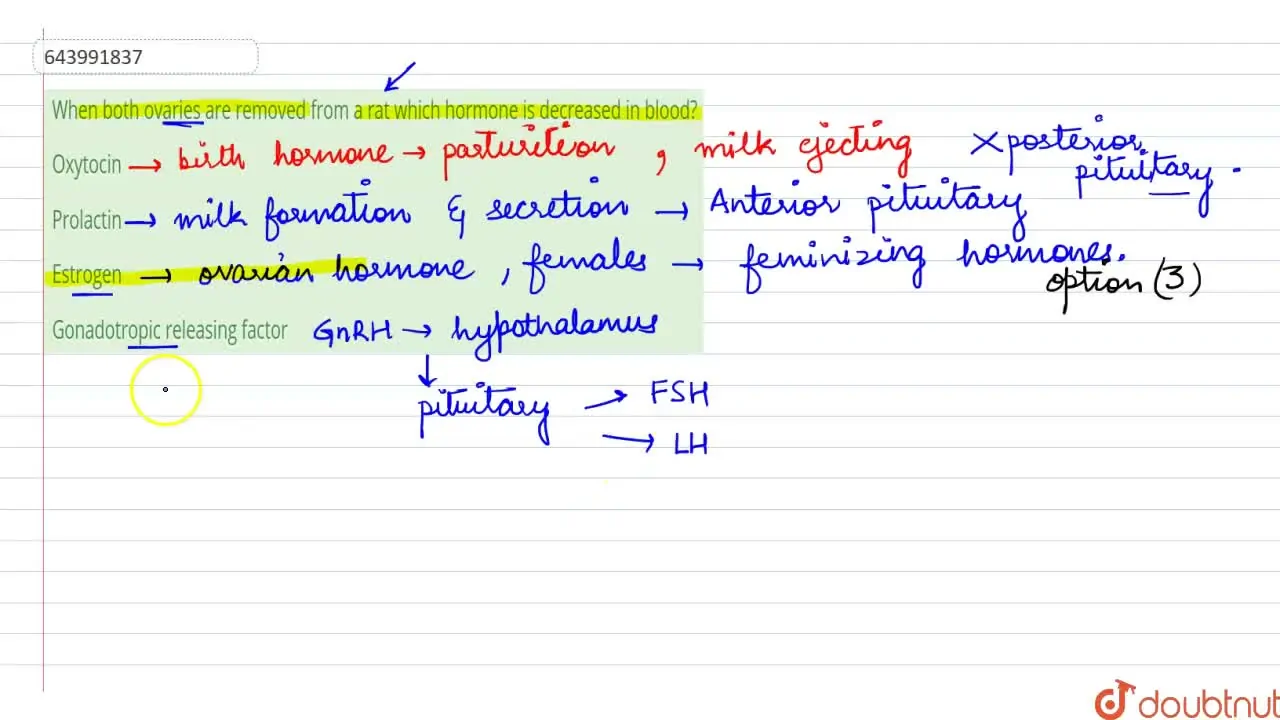 643991837
When both ovaries are removed from a rat which hormone is decreased in blood?
Oxytocin → birth hormone → parturition , milk ejecting × posterior pituitary.
Prolactin → milk formation & secretion → Anterior pituitary
Estrogen → ovarian hormone , females → feminizing hormones.
option (3)
Gonadotropic releasing factor GnRH → hypothalamus
↓
pituitary → FSH
→ LH
doubtnut